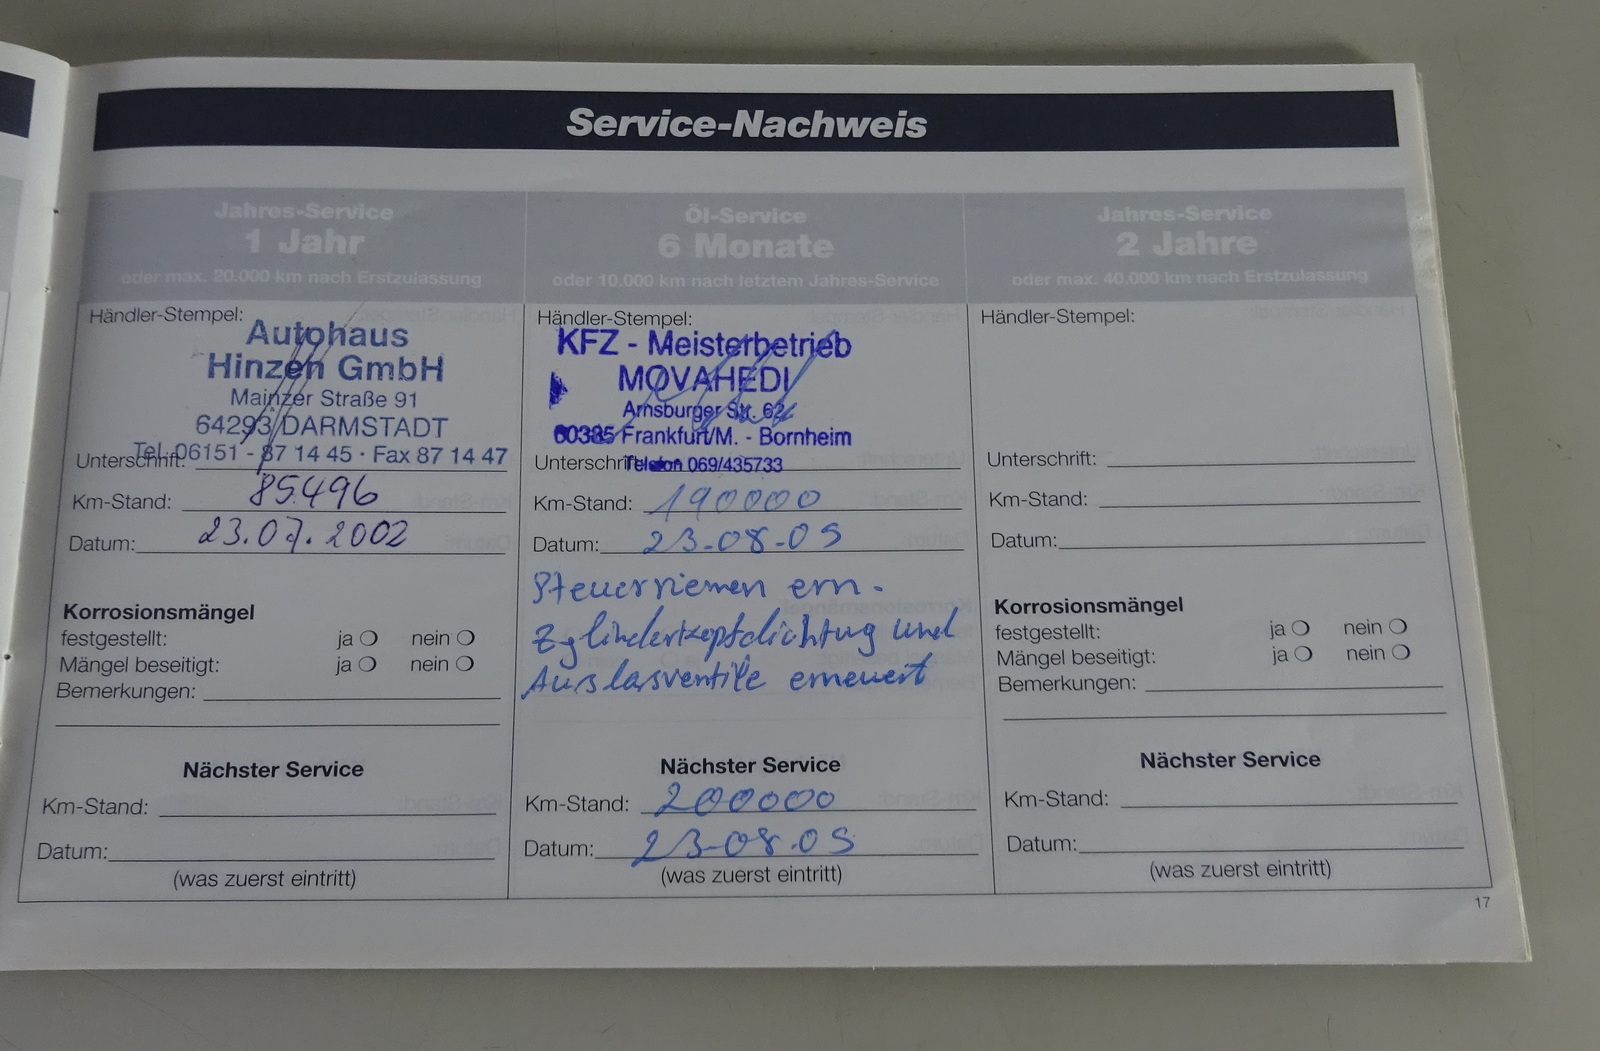 Service-Nachweis
Jahres-Service
1 Jahr
oder max. 20.000 km nach Erstzulassung
Händler-Stempel:
Autohaus
Hinzen GmbH
Mainzer Straße 91
64293 DARMSTADT
Tel. 06151 - 87 14 45 · Fax 87 14 47
Unterschrift:
Km-Stand: 85.496
Datum: 23.07.2002
Korrosionsmängel
festgestellt: ja nein
Mängel beseitigt: ja nein
Bemerkungen:
Nächster Service
Km-Stand:
Datum:
(was zuerst eintritt)
Öl-Service
6 Monate
oder 10.000 km nach letztem Jahres-Service
Händler-Stempel:
KFZ - Meisterbetrieb
MOVAHEDI
Arnsburger Str. 62
60385 Frankfurt/M. - Bornheim
Unterschrift: Telefon 069/435733
Km-Stand: 190000
Datum: 23-08-05
Steuerriemen ern.
Zylinderkopfdichtung und
Auslasventile erneuert
Nächster Service
Km-Stand: 200000
Datum: 23-08.05
(was zuerst eintritt)
Jahres-Service
2 Jahre
oder max. 40.000 km nach Erstzulassung
Händler-Stempel:
Unterschrift:
Km-Stand:
Datum:
Korrosionsmängel
festgestellt: ja nein
Mängel beseitigt: ja nein
Bemerkungen:
Nächster Service
Km-Stand:
Datum:
(was zuerst eintritt)
17